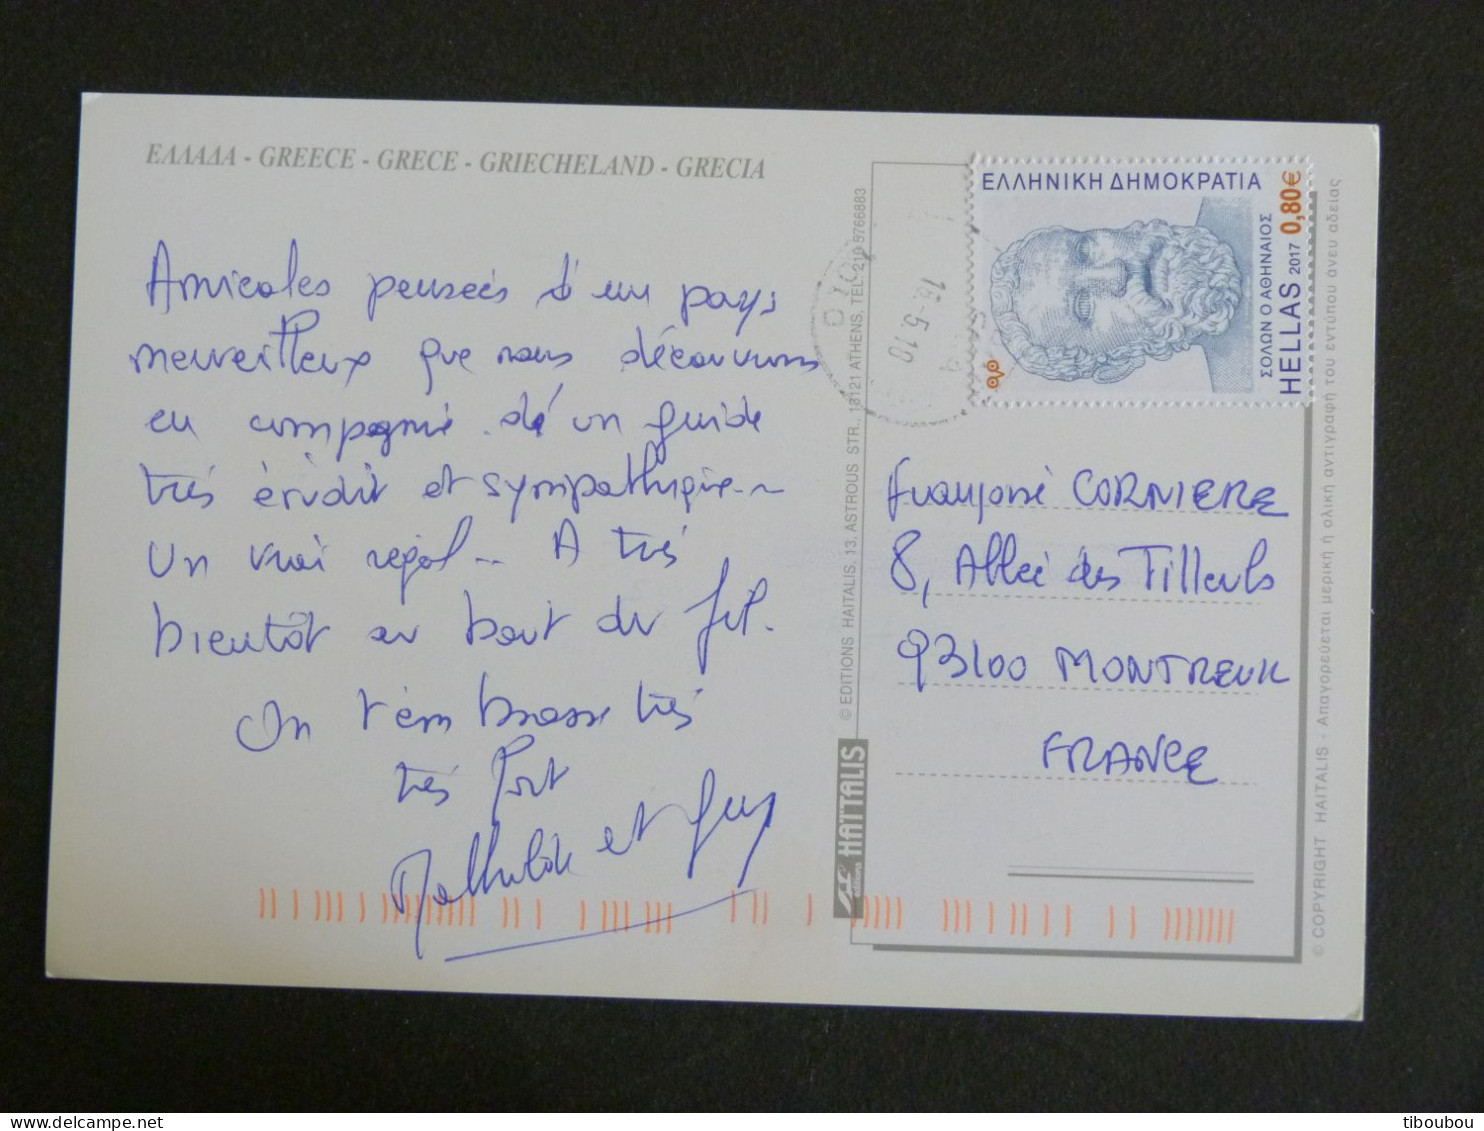 ΕΛΛΑΔΑ - GREECE - GRECE - GRIECHELAND - GRECIA
Amicales pensées d'un pays
merveilleux que nous découvrons
en compagnie d'un guide
très érudit et sympathique
Un vrai régal.. A très
bientôt au bout du fil.
On t'embrasse très
très fort
Mathilde et Guy
© EDITIONS HAITALIS, 13, ASTROUS STR., 13121 ATHENS, TEL: 210 5766883
HAΪTALIS
ΕΛΛΗΝΙΚΗ ΔΗΜΟΚΡΑΤΙΑ
ΣΟΛΩΝ Ο ΑΘΗΝΑΙΟΣ
HELLAS 2017 0,80€
16.5.18
Françoise CORNIERE
8, Allée des Tilleuls
93100 MONTREUIL
FRANCE
© COPYRIGHT HAITALIS - Απαγορεύεται μερική η ολική αντιγραφή του εντύπου άνευ αδείας
tiboubou